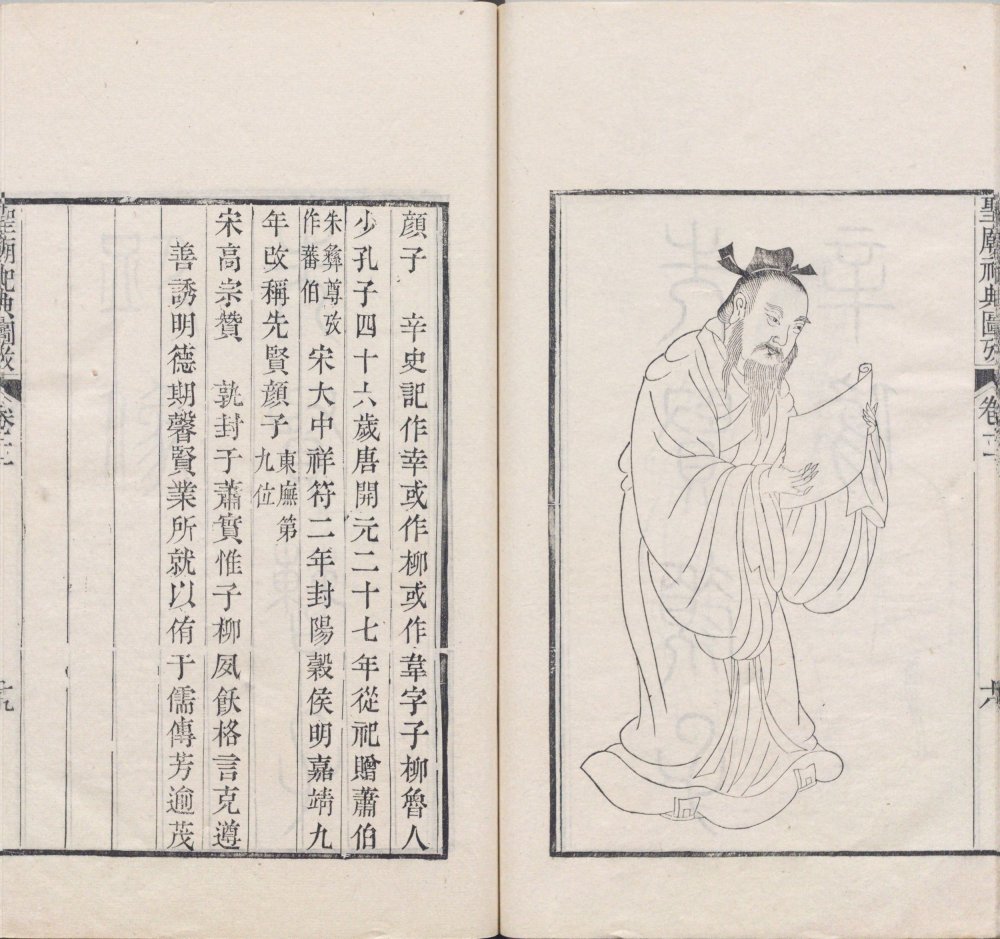 聖廟祀典圖攷
卷三
顏子　辛史記作幸或作柳或作韋字子柳魯人
少孔子四十六歲唐開元二十七年從祀贈蕭伯
朱彝尊攷
作蕃伯
宋大中祥符二年封陽穀侯明嘉靖九
年改稱先賢顏子
東廡第
九位
宋高宗贊　孰封于蕭實惟子柳夙飫格言克遵
善誘明德期馨賢業所就以侑于儒傳芳逾茂
聖廟祀典圖攷
卷三